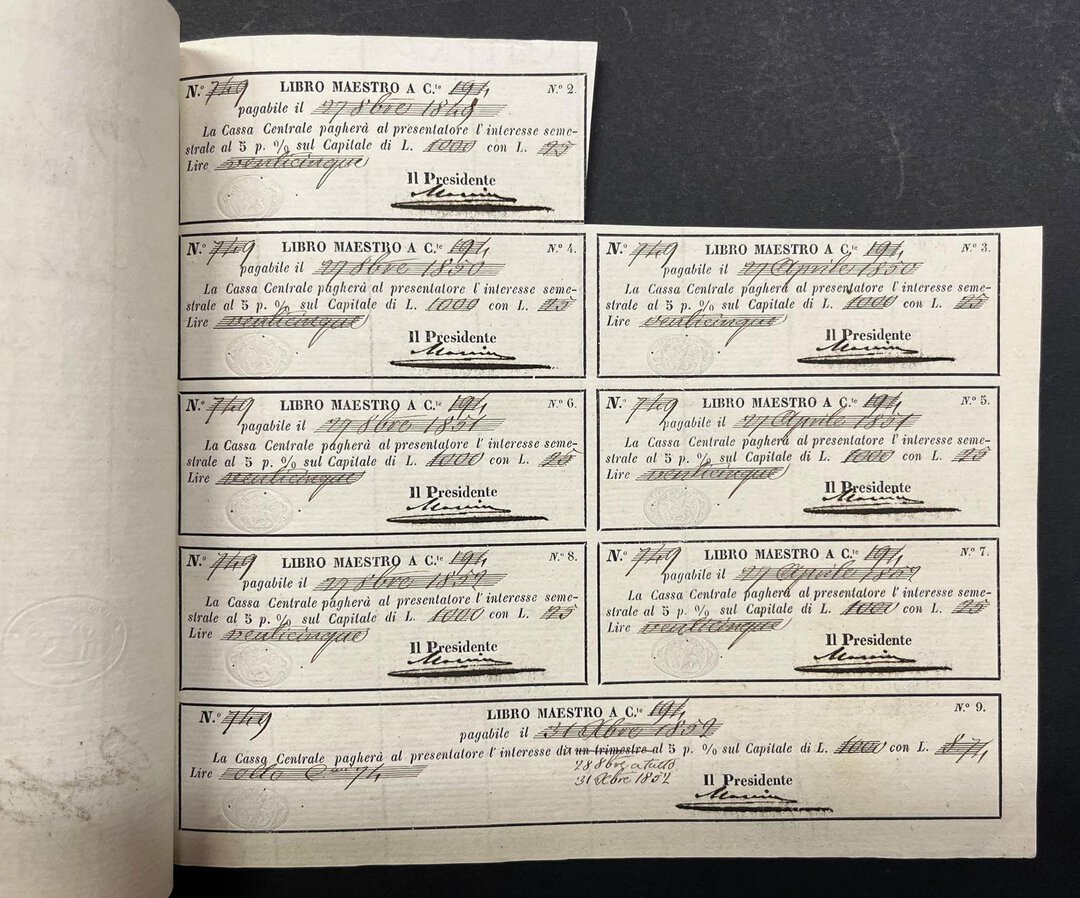 N.º 749 LIBRO MAESTRO A C.te 194 N.º 2.
pagabile il 27 8bre 1849
La Cassa Centrale pagherà al presentatore l'interesse seme-
strale al 5 p. % sul Capitale di L. 1000 con L. 25
Lire venticinque
Il Presidente
N.º 749 LIBRO MAESTRO A C.te 194 N.º 4.
pagabile il 27 8bre 1850
La Cassa Centrale pagherà al presentatore l'interesse seme-
strale al 5 p. % sul Capitale di L. 1000 con L. 25
Lire venticinque
Il Presidente
N.º 749 LIBRO MAESTRO A C.te 194 N.º 3.
pagabile il 27 Aprile 1850
La Cassa Centrale pagherà al presentatore l'interesse seme-
strale al 5 p. % sul Capitale di L. 1000 con L. 25
Lire venticinque
Il Presidente
N.º 749 LIBRO MAESTRO A C.te 194 N.º 6.
pagabile il 27 8bre 1851
La Cassa Centrale pagherà al presentatore l'interesse seme-
strale al 5 p. % sul Capitale di L. 1000 con L. 25
Lire venticinque
Il Presidente
N.º 749 LIBRO MAESTRO A C.te 194 N.º 5.
pagabile il 27 Aprile 1851
La Cassa Centrale pagherà al presentatore l'interesse seme-
strale al 5 p. % sul Capitale di L. 1000 con L. 25
Lire venticinque
Il Presidente
N.º 749 LIBRO MAESTRO A C.te 194 N.º 8.
pagabile il 27 8bre 1852
La Cassa Centrale pagherà al presentatore l'interesse seme-
strale al 5 p. % sul Capitale di L. 1000 con L. 25
Lire venticinque
Il Presidente
N.º 749 LIBRO MAESTRO A C.te 194 N.º 7.
pagabile il 27 Aprile 1852
La Cassa Centrale pagherà al presentatore l'interesse seme-
strale al 5 p. % sul Capitale di L. 1000 con L. 25
Lire venticinque
Il Presidente
N.º 749 LIBRO MAESTRO A C.te 194 N.º 9.
pagabile il 31 Xbre 1852
La Cassa Centrale pagherà al presentatore l'interesse di un trimestre al 5 p. % sul Capitale di L. 1000 con L. 8 74
Lire otto C.mi 74
28 8bre a tutto
31 Xbre 1852
Il Presidente